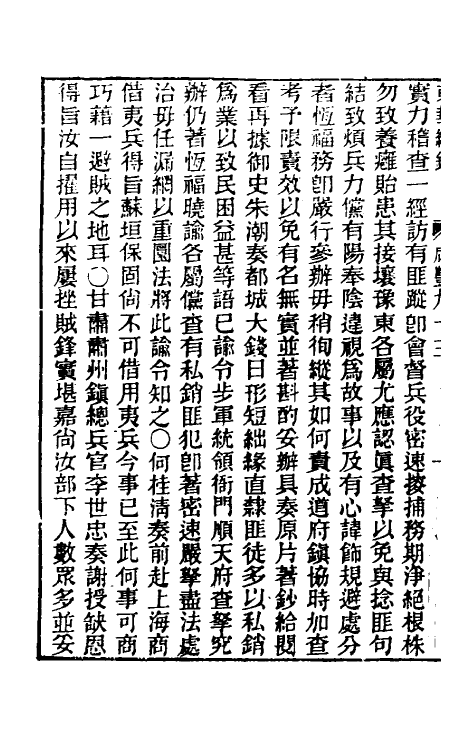 實力稽查一經訪有匪蹤卽會督兵役密速搜捕務期淨絕根株
勿致養癰貽患其接壤豫東各屬尤應認眞查拏以免與捻匪句
結致煩兵力儻有陽奉陰違視爲故事以及有心諱飾規避處分
者恆福務卽嚴行參辦毋稍徇縱其如何責成道府鎭協時加查
考予限責效以免有名無實並著斟酌妥辦具奏原片著鈔給閱
看再據御史朱潮奏都城大錢日形短絀緣直隸匪徒多以私銷
爲業以致民困益甚等語已諭令步軍統領衙門順天府查拏究
辦仍著恆福曉諭各屬儻查有私銷匪犯卽著密速嚴拏盡法處
治毋任漏網以重圜法將此諭令知之〇何桂淸奏前赴上海商
借夷兵得旨蘇垣保固尙不可借用夷兵今事已至此何事可商
巧藉一避賊之地耳〇甘肅肅州鎭總兵官李世忠奏謝授缺恩
得旨汝自擢用以來屢挫賊鋒實堪嘉尙汝部下人數眾多並妥